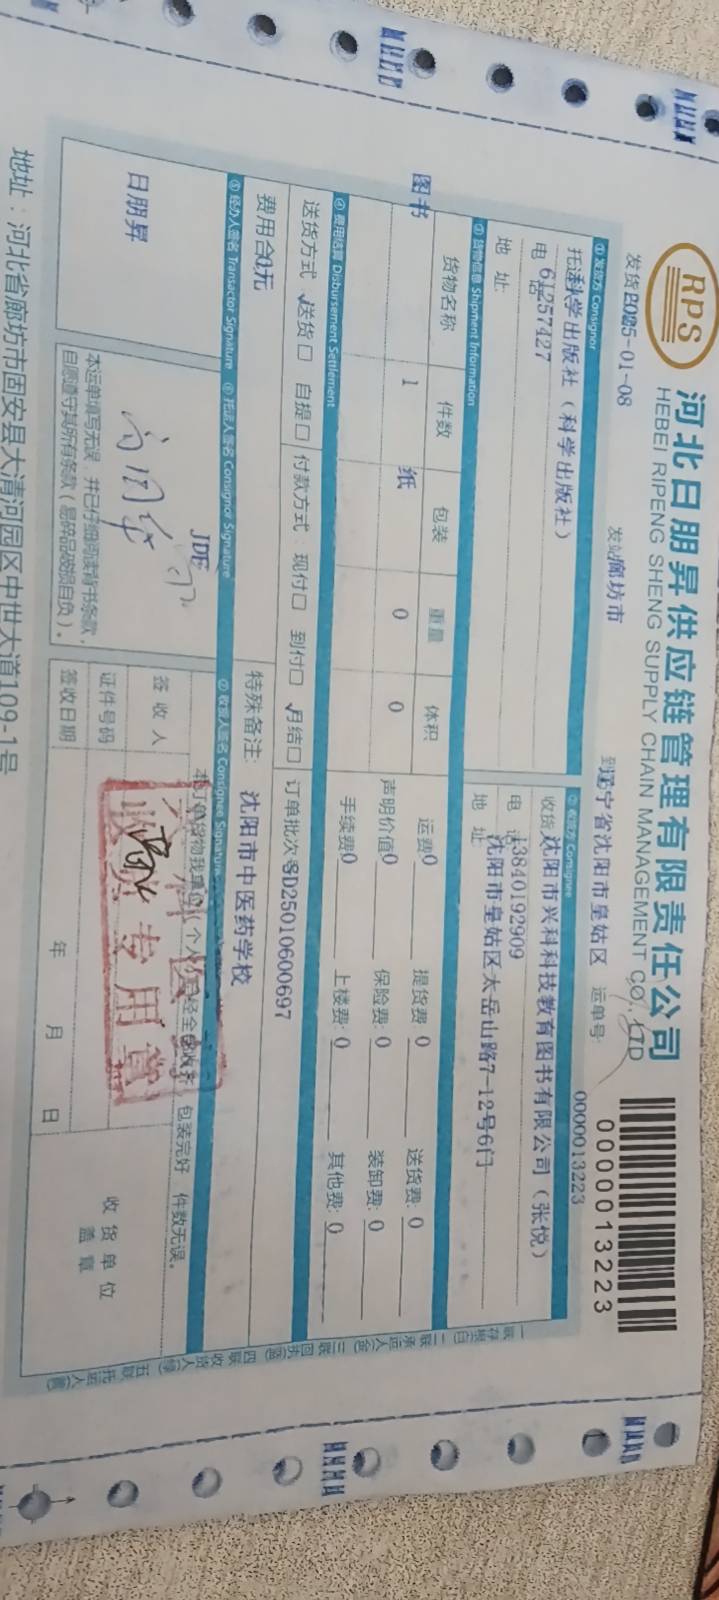 RPS
河北日朋昇供应链管理有限责任公司
HEBEI RIPENG SHENG SUPPLY CHAIN MANAGEMENT CO., LTD
0000013223
发货 2025-01-08
发站 廊坊市
到 辽宁省沈阳市皇姑区
运单号 0000013223
① 发货方 Consignor
② 收货方 Consignee
托运 科学出版社（科学出版社）
收货 沈阳市兴科科技教育图书有限公司（张悦）
电话 61257427
电话 13840192909
地 址:
地 址 沈阳市皇姑区太岳山路7-12号6门
③ 货物信息 Shipment Information
货物名称 件数 包装 重量 体积
图书 1 纸 0 0
运费 0 提货费 0 送货费: 0
声明价值 0 保险费: 0 装卸费: 0
手续费 0 上楼费: 0 其他费: 0
④ 费用结算 Disbursement Settlement
送货方式: √送货□ 自提□ 付款方式: 现付□ 到付□ √月结□ 订单批次号 SD25010600697
费用合 0元
特殊备注: 沈阳市中医药学校
⑤ 经办人签名 Transactor Signature
⑥ 托运人签名 Consignor Signature
⑦ 收货人签名 Consignee Signature
日朋昇
JDE
本运单填写无误，并已仔细阅读背书条款，
自愿遵守其所有条款（易碎品破损自负）。
本订单货物我单位（个人）已经全部收齐，包装完好，件数无误。
签 收 人
证件号码
签收日期 年 月 日
收货单位
盖 章
收 专用章
一联存根(白) 二联承运人(红) 三联回执(蓝) 四联收货人(绿) 五联托运人(黄)
地址：河北省廊坊市固安县大清河园区中世大道109-1号